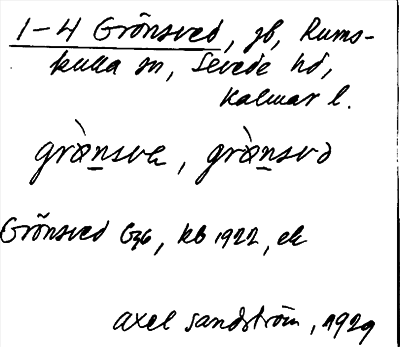 1-4 Grönsved, gb, Rums-
kulla sn, Sevede hd,
Kalmar l.
grö̀nsve, grö̀nsvə
Grönsved G96, kb 1922, ek
Axel Sandström, 1929